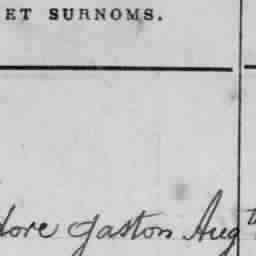 ET SURNOMS.
dore Gaston Aug te